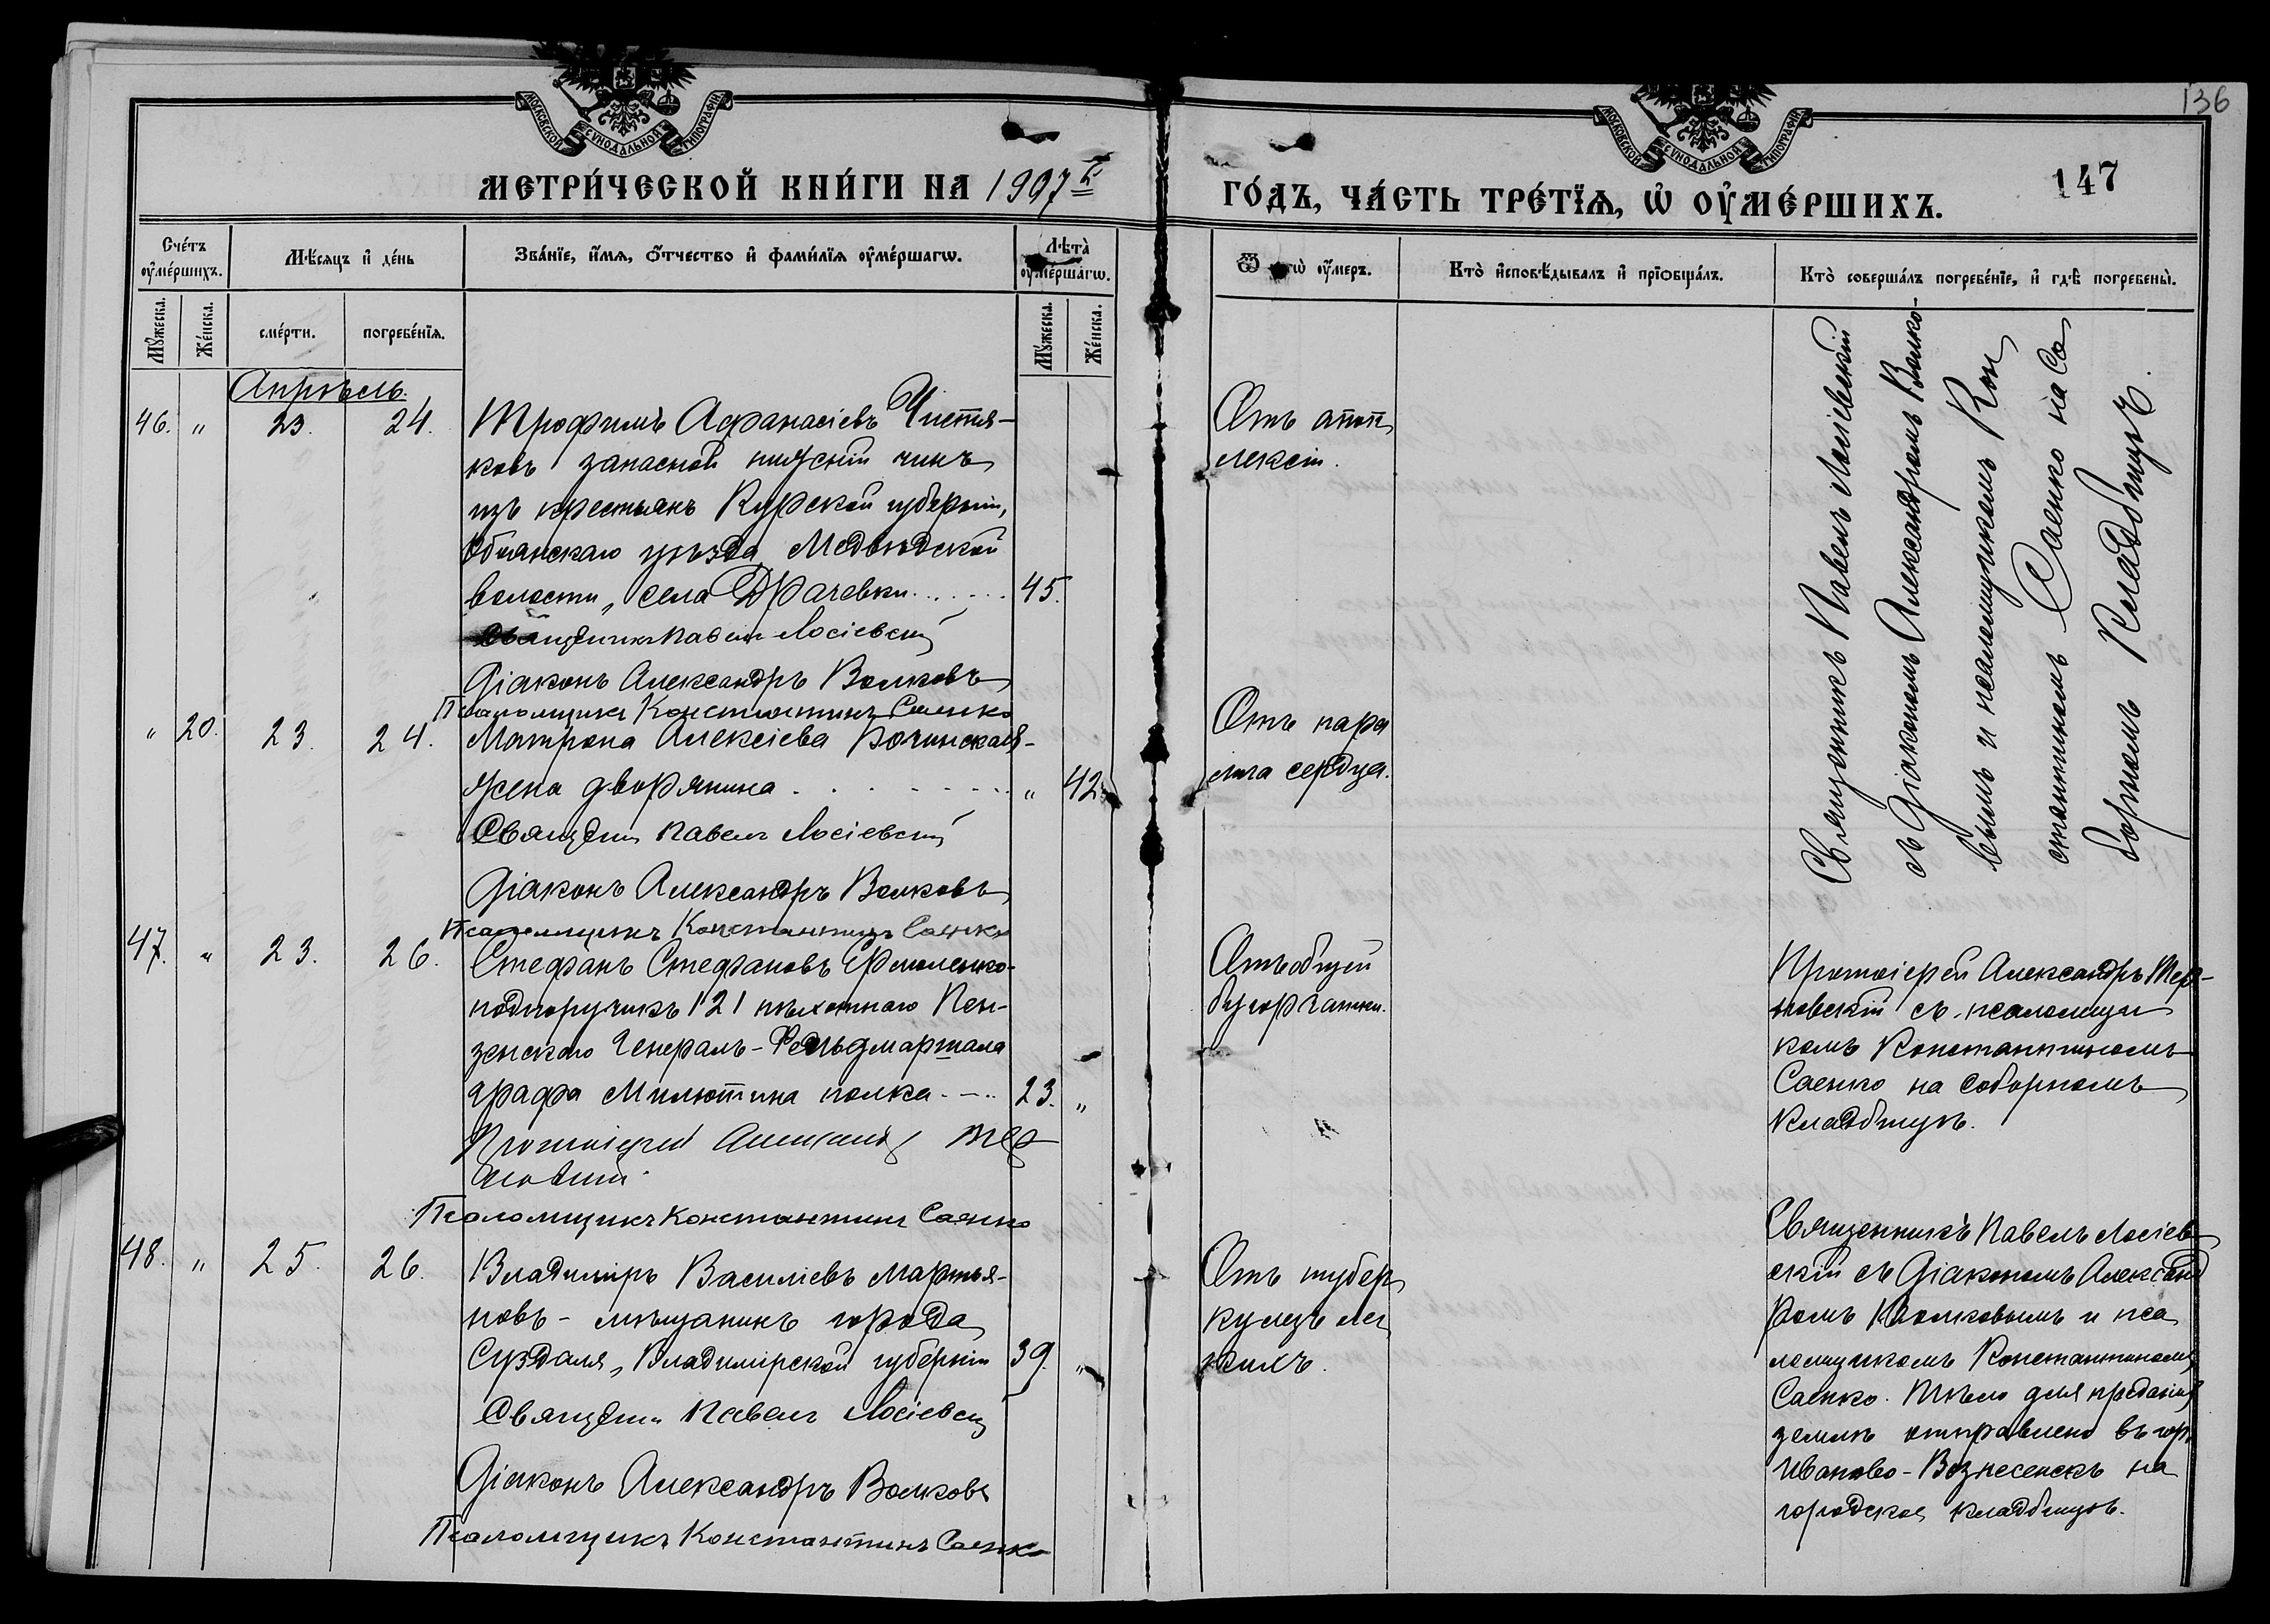 136
МОСКОВСКОЙ СѴНОДАЛЬНОЙ ТИПОГРАФІИ
МОСКОВСКОЙ СѴНОДАЛЬНОЙ ТИПОГРАФІИ
МЕТРИ́ЧЕСКОЙ КНИ́ГИ НА 1907й
ГО́ДЪ, ЧА́СТЬ ТРЕ́ТЇѦ, Ѡ҆ ОУ҆МЕ́РШИХЪ.
147
Сче́тъ оу҆ме́ршихъ.
Мѣ́сяцъ и҆ де́нь
Зва́нїе, и҆́мѧ, ѻ҆́тчество и҆ фами́лїѧ оу҆ме́ршагѡ.
Лѣта̀ оу҆ме́ршагѡ.
оу҆́меръ.
Кто̀ и҆сповѣ́дывалъ и҆ прїѡбща́лъ.
Кто̀ соверша́лъ погребе́нїе, и҆ гдѣ̀ погребены̀.
Мꙋ́жеска.
Же́нска.
сме́рти.
погребе́нїѧ.
Мꙋ́жеска.
Же́нска.
Апрѣль.
46. „ 23. 24. Трофимъ Афанасіевъ Чистя-
ковъ запасной нижній чинъ
изъ крестьянъ Курской губерніи,
Обоянскаго уѣзда, Медвѣдской
волости, села Драчевки....... 45.
Священникъ Павелъ Лосіевскій
Діаконъ Александръ Волковъ
Псаломщикъ Константинъ Саенко
Отъ апоп
лексіи.
Священникъ Павелъ Лосіевскій
съ Діакономъ Александромъ Волко-
вымъ и псаломщикомъ Кон
стантиномъ Саенко на Со
борномъ Кладбищѣ.
„ 20. 23. 24. Матрона Алексіева Кочинская-
жена дворянина . . . . . . . . „ 42.
Священни Павелъ Лосіевскій
Діаконъ Александръ Волковъ
Псаломщикъ Константинъ Саенко
Отъ пара
лича сердца.
47. „ 23. 26. Стефанъ Стефановъ Ермоленко-
подпоручикъ 121 пѣхотнаго Пен-
зенскаго Генералъ-Фельдмаршала
графа Милютина полка.-.. 23. „
Протоіерей Александръ Тер
новскій
Псаломщикъ Константинъ Саенко
Отъ общей
бугорчатки.
Протоіерей Александръ Тер-
новскій съ псаломщи
комъ Константиномъ
Саенко на Соборномъ
Кладбищѣ.
48. „ 25. 26. Владиміръ Василіевъ Мартья-
новъ - мѣщанинъ города
Суздаля, Владимірской губерніи 39. „
Священни Павелъ Лосіевскій
Діаконъ Александръ Волковъ
Псаломщикъ Константинъ Саенко
Отъ тубер
кулезъ лег
кихъ.
Священникъ Павелъ Лосіев
скій съ Діакономъ Александ
ромъ Волковымъ и пса
ломщикомъ Константиномъ
Саенко. Тѣло для преданія
землѣ отправлено въ гор.
Иваново-Вознесенскъ на
городское кладбище.